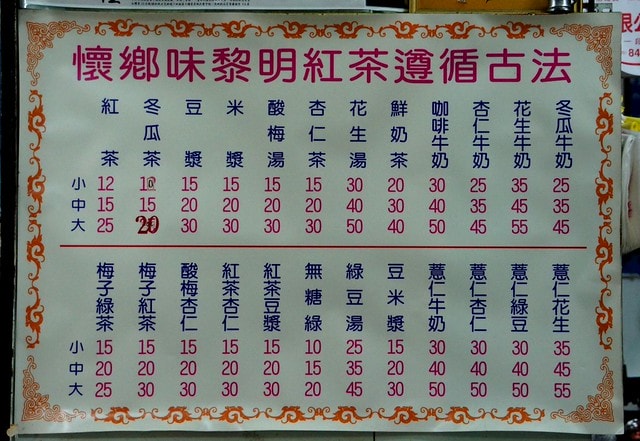 懷鄉味黎明紅茶遵循古法
紅茶 冬瓜茶 豆漿 米漿 酸梅湯 杏仁茶 花生湯 鮮奶茶 咖啡牛奶 杏仁牛奶 花生牛奶 冬瓜牛奶
小 12 10 15 15 15 15 30 20 30 25 35 25
中 15 15 20 20 20 20 40 30 40 35 45 35
大 25 20 30 30 30 30 50 40 50 45 55 45
梅子綠茶 梅子紅茶 酸梅杏仁 紅茶杏仁 紅茶豆漿 無糖綠 綠豆湯 豆米漿 薏仁牛奶 薏仁杏仁 薏仁綠豆 薏仁花生
小 15 15 15 15 15 10 25 15 30 30 30 35
中 20 20 20 20 20 15 35 20 40 40 40 45
大 25 30 30 30 30 20 45 30 50 50 50 55